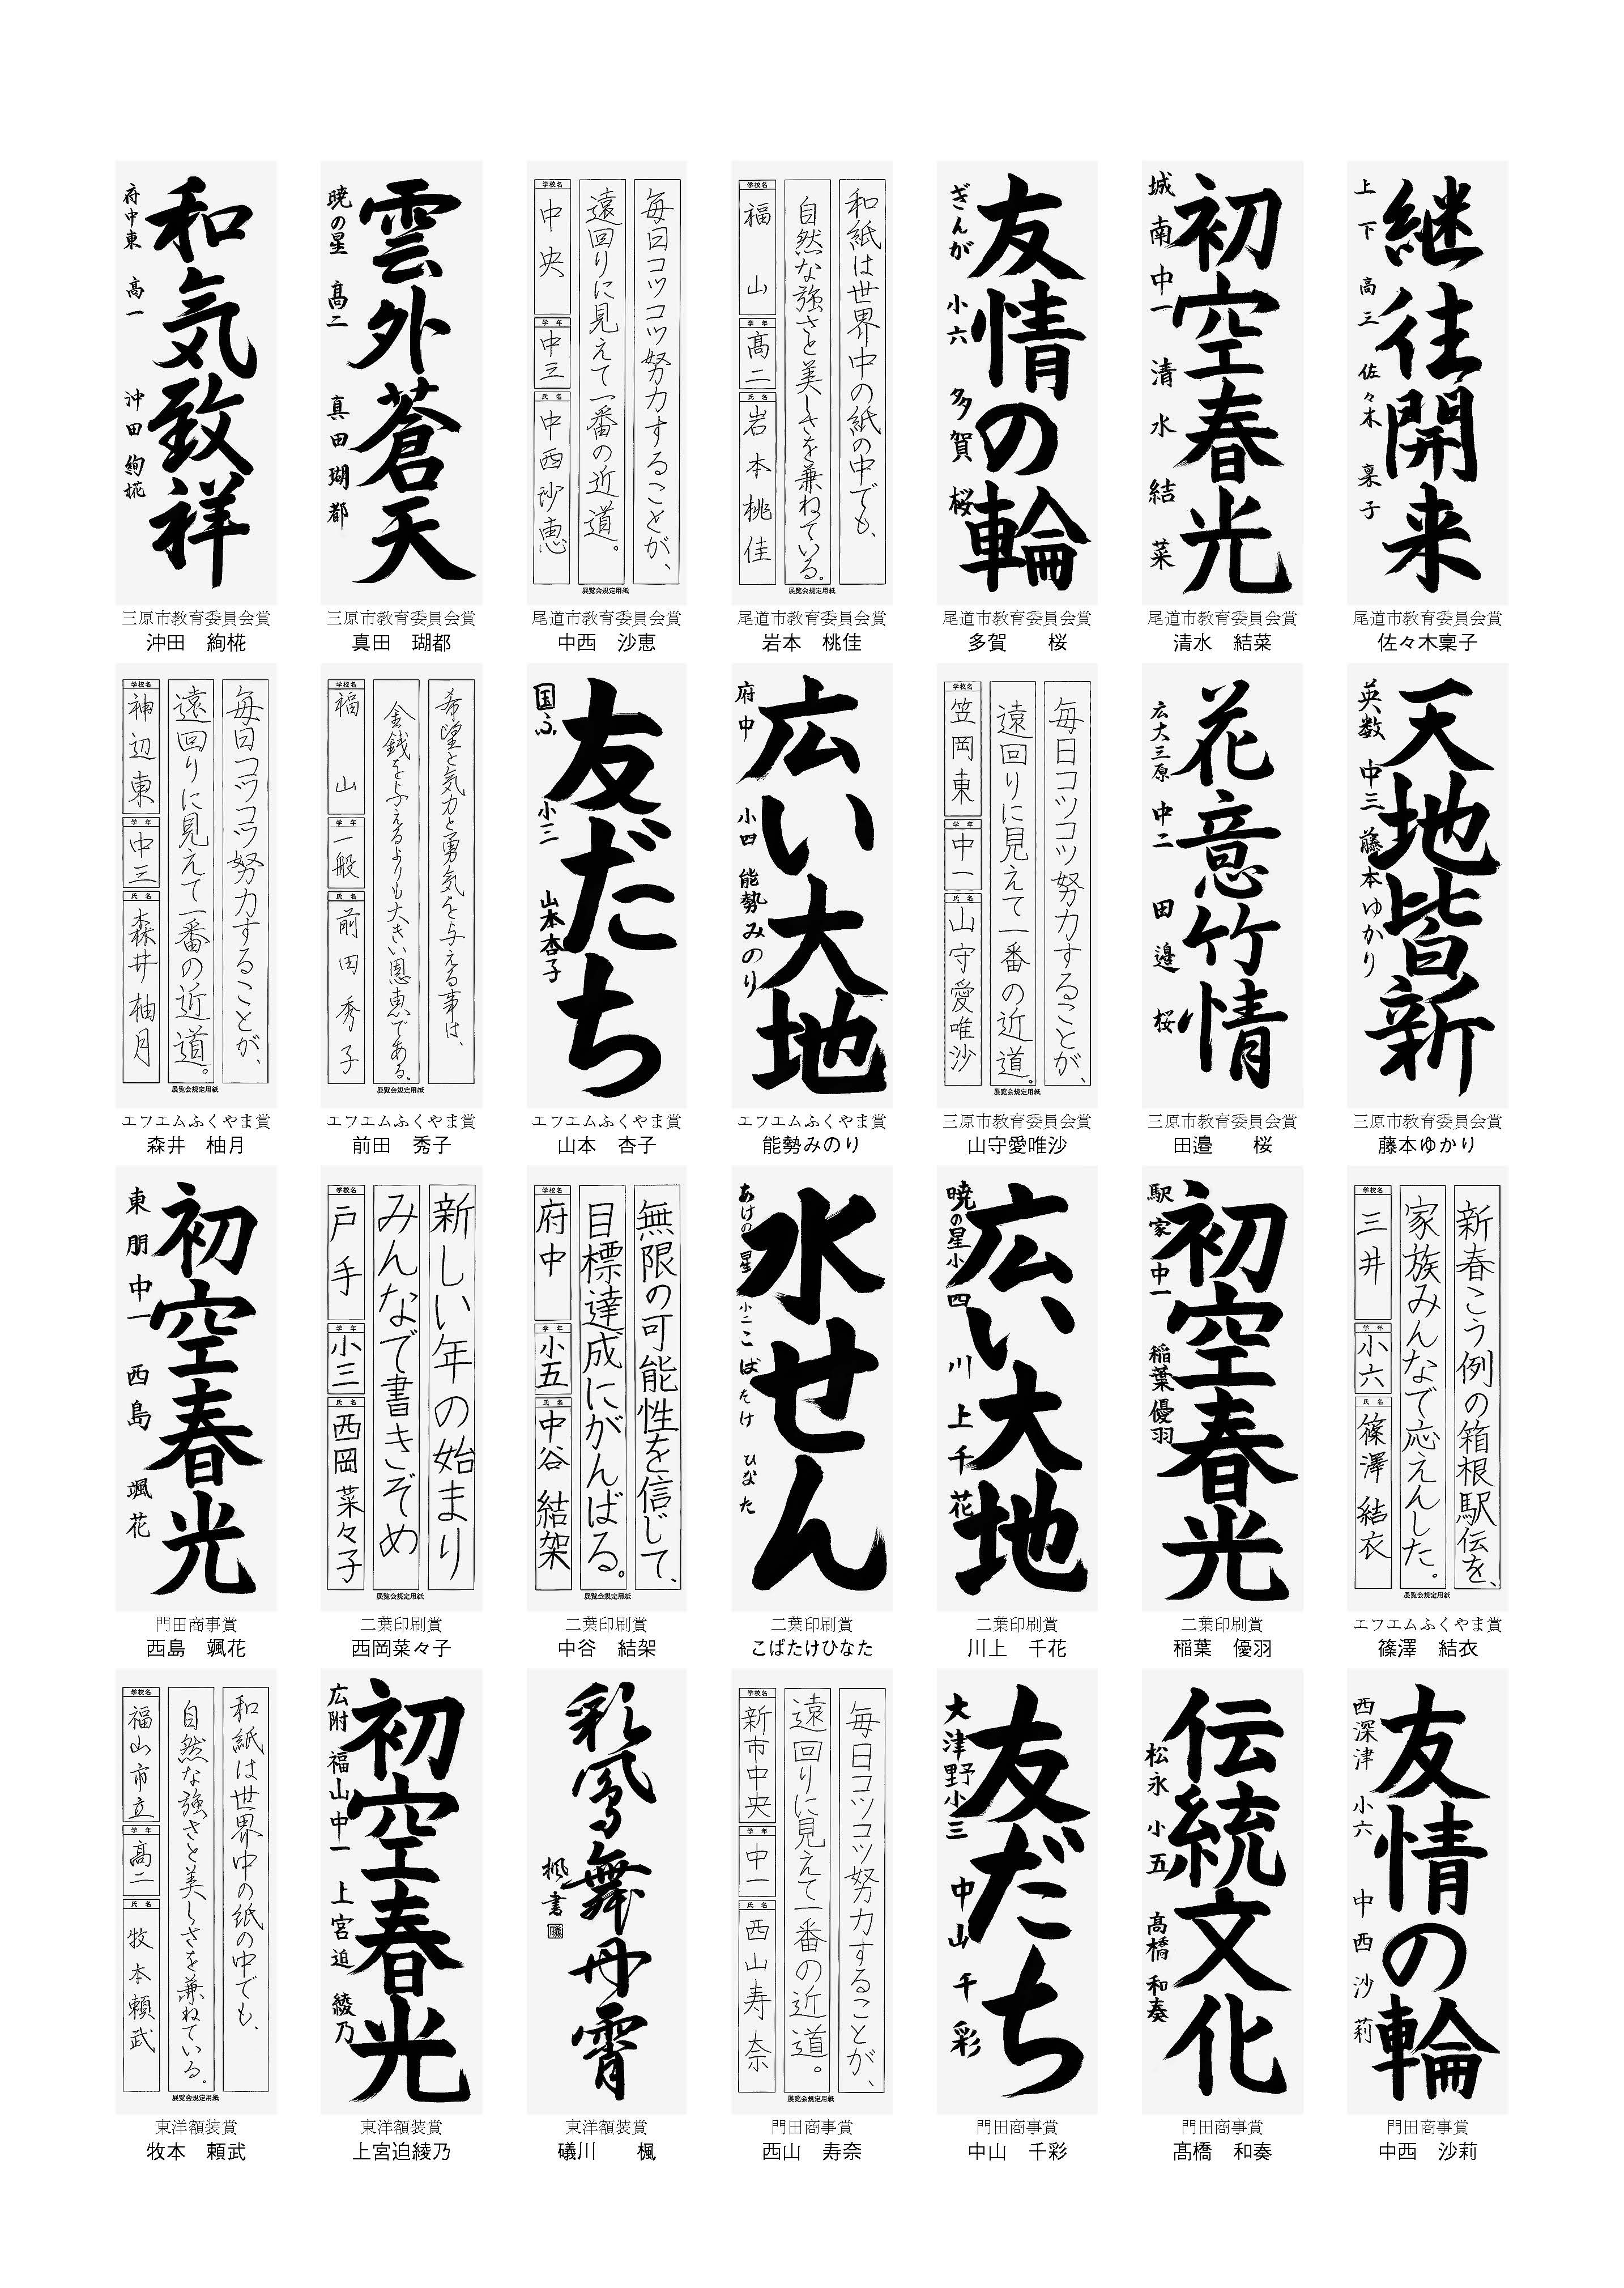 継往開来
上下 高三 佐々木 稟子
尾道市教育委員会賞
佐々木稟子
初空春光
城南 中一 清水 結菜
尾道市教育委員会賞
清水 結菜
友情の輪
ぎんが 小六 多賀 桜
尾道市教育委員会賞
多賀 桜
和紙は世界中の紙の中でも、
自然な強さと美しさを兼ねている。
学校名 福山 学年 高二 氏名 岩本桃佳
展覧会規定用紙
尾道市教育委員会賞
岩本 桃佳
毎日コツコツ努力することが、
遠回りに見えて一番の近道。
学校名 中央 学年 中三 氏名 中西沙恵
展覧会規定用紙
尾道市教育委員会賞
中西 沙恵
雲外蒼天
暁の星 高二 真田瑚都
三原市教育委員会賞
真田 瑚都
和気致祥
府中東 高一 沖田絢椛
三原市教育委員会賞
沖田 絢椛
天地皆新
英数 中三 藤本ゆかり
三原市教育委員会賞
藤本ゆかり
花意竹情
広大三原 中二 田邉 桜
三原市教育委員会賞
田邉 桜
毎日コツコツ努力することが、
遠回りに見えて一番の近道。
学校名 笠岡東 学年 中一 氏名 山守愛唯沙
展覧会規定用紙
三原市教育委員会賞
山守愛唯沙
広い大地
府中 小四 能勢みのり
エフエムふくやま賞
能勢みのり
友だち
国ふ 小三 山本杏子
エフエムふくやま賞
山本 杏子
希望と気力と勇気を与える事は、
金銭を与えるよりも大きい恩恵である。
学校名 福山 学年 一般 氏名 前田秀子
展覧会規定用紙
エフエムふくやま賞
前田 秀子
毎日コツコツ努力することが、
遠回りに見えて一番の近道。
学校名 神辺東 学年 中三 氏名 森井柚月
展覧会規定用紙
エフエムふくやま賞
森井 柚月
新春こう例の箱根駅伝を、
家族みんなで応えんした。
学校名 三井 学年 小六 氏名 篠澤結衣
展覧会規定用紙
エフエムふくやま賞
篠澤 結衣
初空春光
駅家 中一 稲葉優羽
二葉印刷賞
稲葉 優羽
広い大地
暁の星小四 川上千花
二葉印刷賞
川上 千花
水せん
あけの星 小二 こばたけ ひなた
二葉印刷賞
こばたけひなた
無限の可能性を信じて、
目標達成にがんばる。
学校名 府中 学年 小五 氏名 中谷結架
展覧会規定用紙
二葉印刷賞
中谷 結架
新しい年の始まり
みんなで書きぞめ
学校名 戸手 学年 小三 氏名 西岡菜々子
展覧会規定用紙
二葉印刷賞
西岡菜々子
初空春光
東朋 中一 西島 颯花
門田商事賞
西島 颯花
友情の輪
西深津 小六 中西沙莉
門田商事賞
中西 沙莉
伝統文化
松永 小五 髙橋和奏
門田商事賞
髙橋 和奏
友だち
大津野小三 中山千彩
門田商事賞
中山 千彩
毎日コツコツ努力することが、
遠回りに見えて一番の近道。
学校名 新市中央 学年 中一 氏名 西山寿奈
展覧会規定用紙
門田商事賞
西山 寿奈
彩鳳舞丹霄
楓書
東洋額装賞
礒川 楓
初空春光
広附福山中一 上宮迫綾乃
東洋額装賞
上宮迫綾乃
和紙は世界中の紙の中でも、
自然な強さと美しさを兼ねている。
学校名 福山市立 学年 高二 氏名 牧本頼武
展覧会規定用紙
東洋額装賞
牧本 頼武